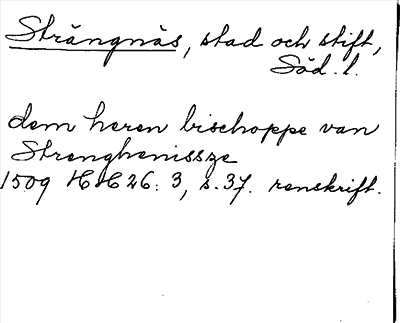 Strängnäs, stad och stift,
Söd. l.
dem heren bischoppe van
Strenghenissze
1509 HH 26: 3, s. 37. renskrift.